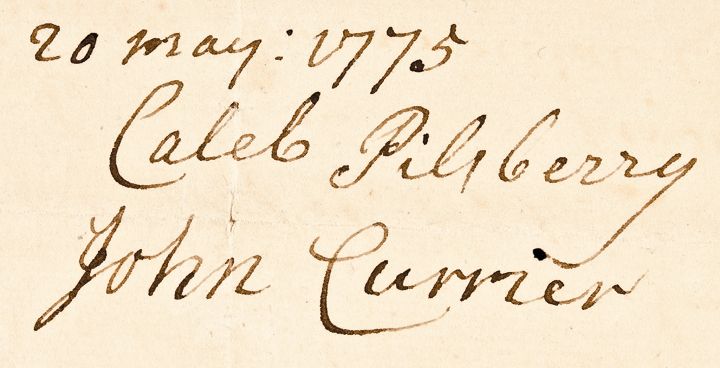 20 may: 1775
Caleb Pilsberry
John Currier